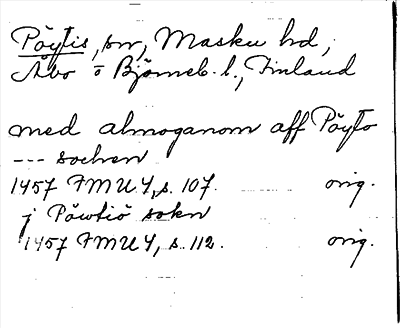 Pöytis, sn, Masku hd,
Åbo o Björneb. l., Finland
med almoganom aff Pöyto
--- sochen
1457 FMU 4, s. 107. orig.
j Pöwtiö sokn
1457 FMU 4, s. 112. orig.